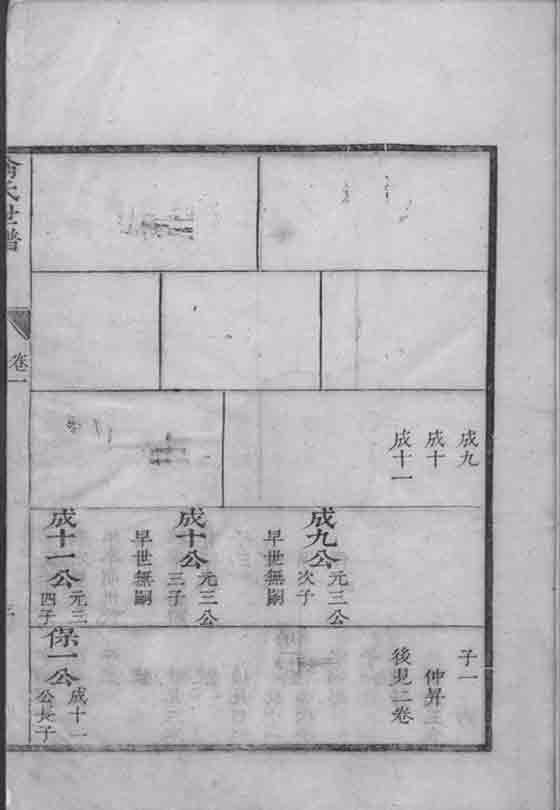 成九
成十
成十一
成九公
元三公
次子
早世無嗣
成十公
元三公
三子
早世無嗣
成十一公
元三
四子
子一
仲昇
後見二卷
保一公
成十一
公長子
氏世譜
卷一